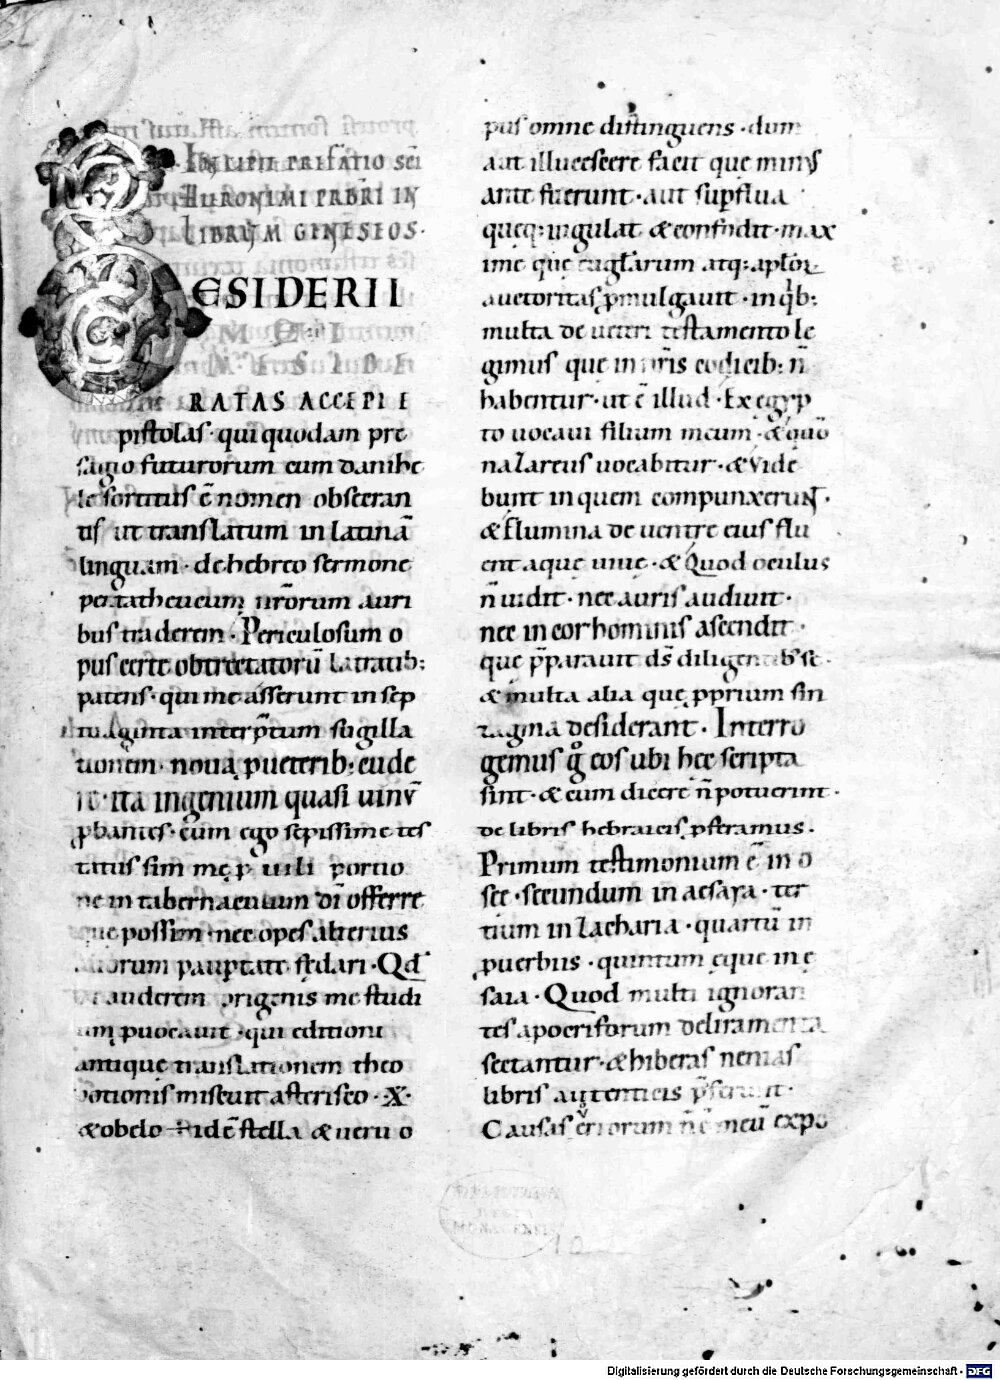 INCIPIT PREFATIO SCI
HIERONIMI PRBRI IN
LIBRUM GENESEOS·
DESIDERII
MEI
DESIDE
RATAS ACCEPI E
pistolas· qui quodam pre
sagio futurorum cum danihe
le sortitus ē nomen obsecran
tis ut translatum in latinā
linguam· de hebreo sermone
pentatheucum nr̄orum auri
bus traderem· Periculosum o
pus certe obtrectatorū latratib;
patens· qui me asserunt in sep
tuaginta interp̄tum sugilla
tionem· noua p ueterib; cude
re· ita ingenium quasi uinū
pbantes· cum ego sepissime tes
tatus sim me p uirili portio
ne in tabernaculum dī offerre
que possim· nec opes alterius
aliorum paup̄tate fedari· Qd
ut auderem origenis me studi
um puocauit· qui editioni
antique translationem theo
dotionis miscuit asterisco ·X·
& obelo ÷ idē stella & ueru o
pus omne distinguens· dum
aut illucescere facit que minus
ante fuerunt· aut supflua
queq; iugulat & confodit· max
ime que euglarum atq; aplor
auctoritas pmulgauit· in qb;
multa de ueteri testamento le
gimus que in nr̄is codicib; ñ
habentur· ut ē illud· Ex egyp
to uocaui filium meum· & quō
nazareus uocabitur· & Vide
bunt in quem compunxerunt·
& Flumina de uentre eius flu
ent aque uiue· & Quod oculus
ñ uidit· nec auris audiuit·
nec in cor hominis ascendit·
que p̄parauit ds̄ diligentib; se·
& multa alia que pprium sin
tagma desiderant· Interro
gemus g° eos ubi hec scripta
sint· & cum dicere ñ potuerint·
de libris hebraicis pferamus·
Primum testimonium ē in o
see· secundum in aesaya· ter
tium in zacharia· quartū in
puerbiis· quintum eque in e
saia· Quod multi ignoran
tes apocriforum deliramenta
sectantur· & hiberas nenias
libris autenticis p̄ferunt·
Causas erroris n̄ ē meū expo
Digitalisierung gefördert durch die Deutsche Forschungsgemeinschaft - DFG